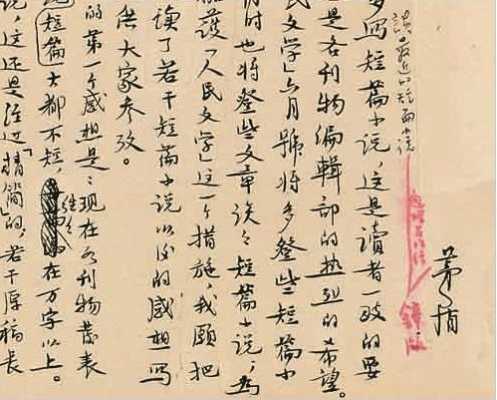 茅盾
讀最近的短篇小说
鋅版
多写短篇小说，这是讀者一致的要
是各刊物编辑部的热烈的希望。
民文学」六月號将多登些短篇小
时也将登些文章谈谈短篇小说，为
護「人民文学」这一个措施，我願把
讀了若干短篇小说以後的感想写
供大家参攷。
的第一个感想是：现在各刊物发表
短篇大都不短，往往在万字以上。
说，这还是经过“精简”的，若干原稿长